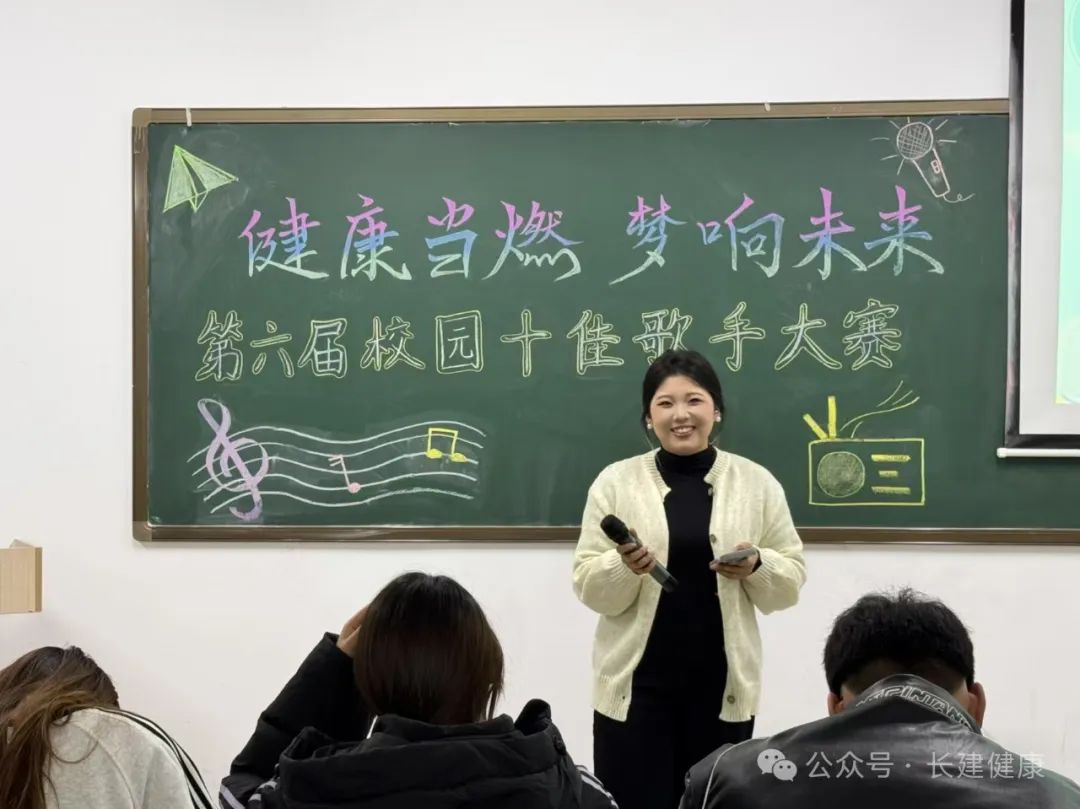 健康当燃 梦响未来
第六届校园十佳歌手大赛
公众号 · 长建健康